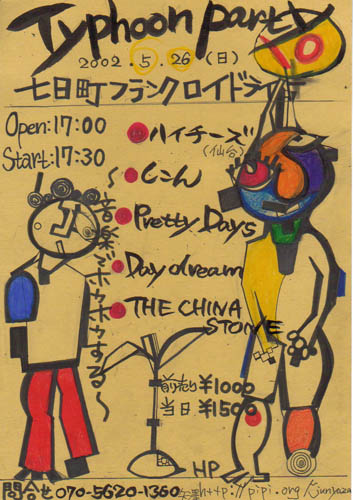 Typhoon party
2002.5.26(日)
七日町フランクロイドライ
Open:17:00
Start:17:30
ハイチーズ
(仙台)
じこん
Pretty Days
Day dream
THE CHINA
STONE
~音楽でボウボウする~
前売り ¥1000
当日 ¥1500
問合せ 070-5620-1360
HP http://pipi.org/